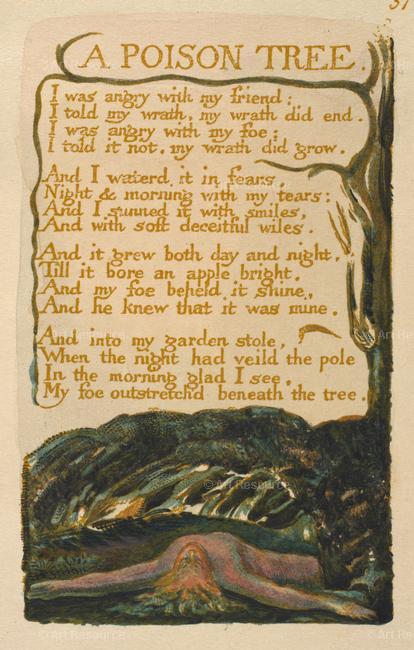 A POISON TREE.
I was angry with my friend:
I told my wrath, my wrath did end.
I was angry with my foe:
I told it not, my wrath did grow.
And I waterd it in fears,
Night & morning with my tears:
And I sunned it with smiles,
And with soft deceitful wiles.
And it grew both day and night,
Till it bore an apple bright.
And my foe beheld it shine,
And he knew that it was mine.
And into my garden stole,
When the night had veild the pole
In the morning glad I see,
My foe outstretchd beneath the tree.
© Art Resource
© Art Resource
© Art Resource